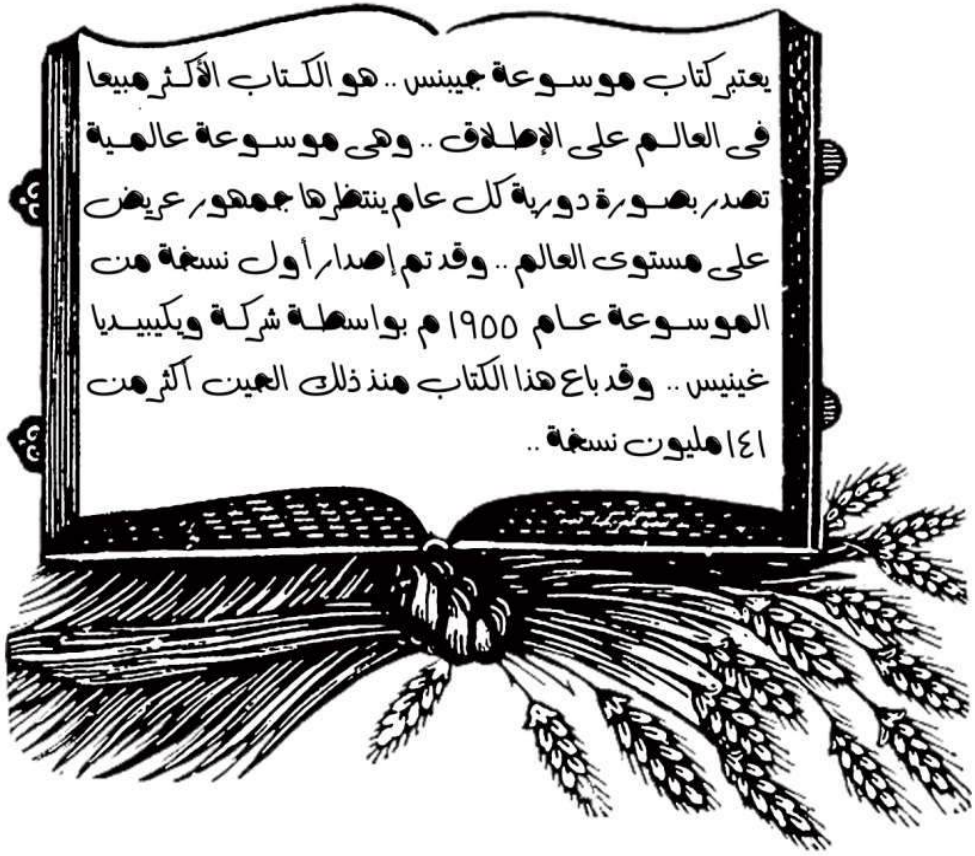 يعتبر كتاب موسوعة جيبنس .. هو الكتاب الأكثر مبيعا
فى العالم على الإطلاق .. وهى موسوعة عالمية
تصدر بصورة دورية كل عام ينتظرها جمهور عريض
على مستوى العالم .. وقد تم إصدار أول نسخة من
الموسوعة عام ١٩٥٥ م بواسطة شركة ويكيبيديا
غينيس .. وقد باع هذا الكتاب منذ ذلك الحين أكثر من
١٤١ مليون نسخة ..